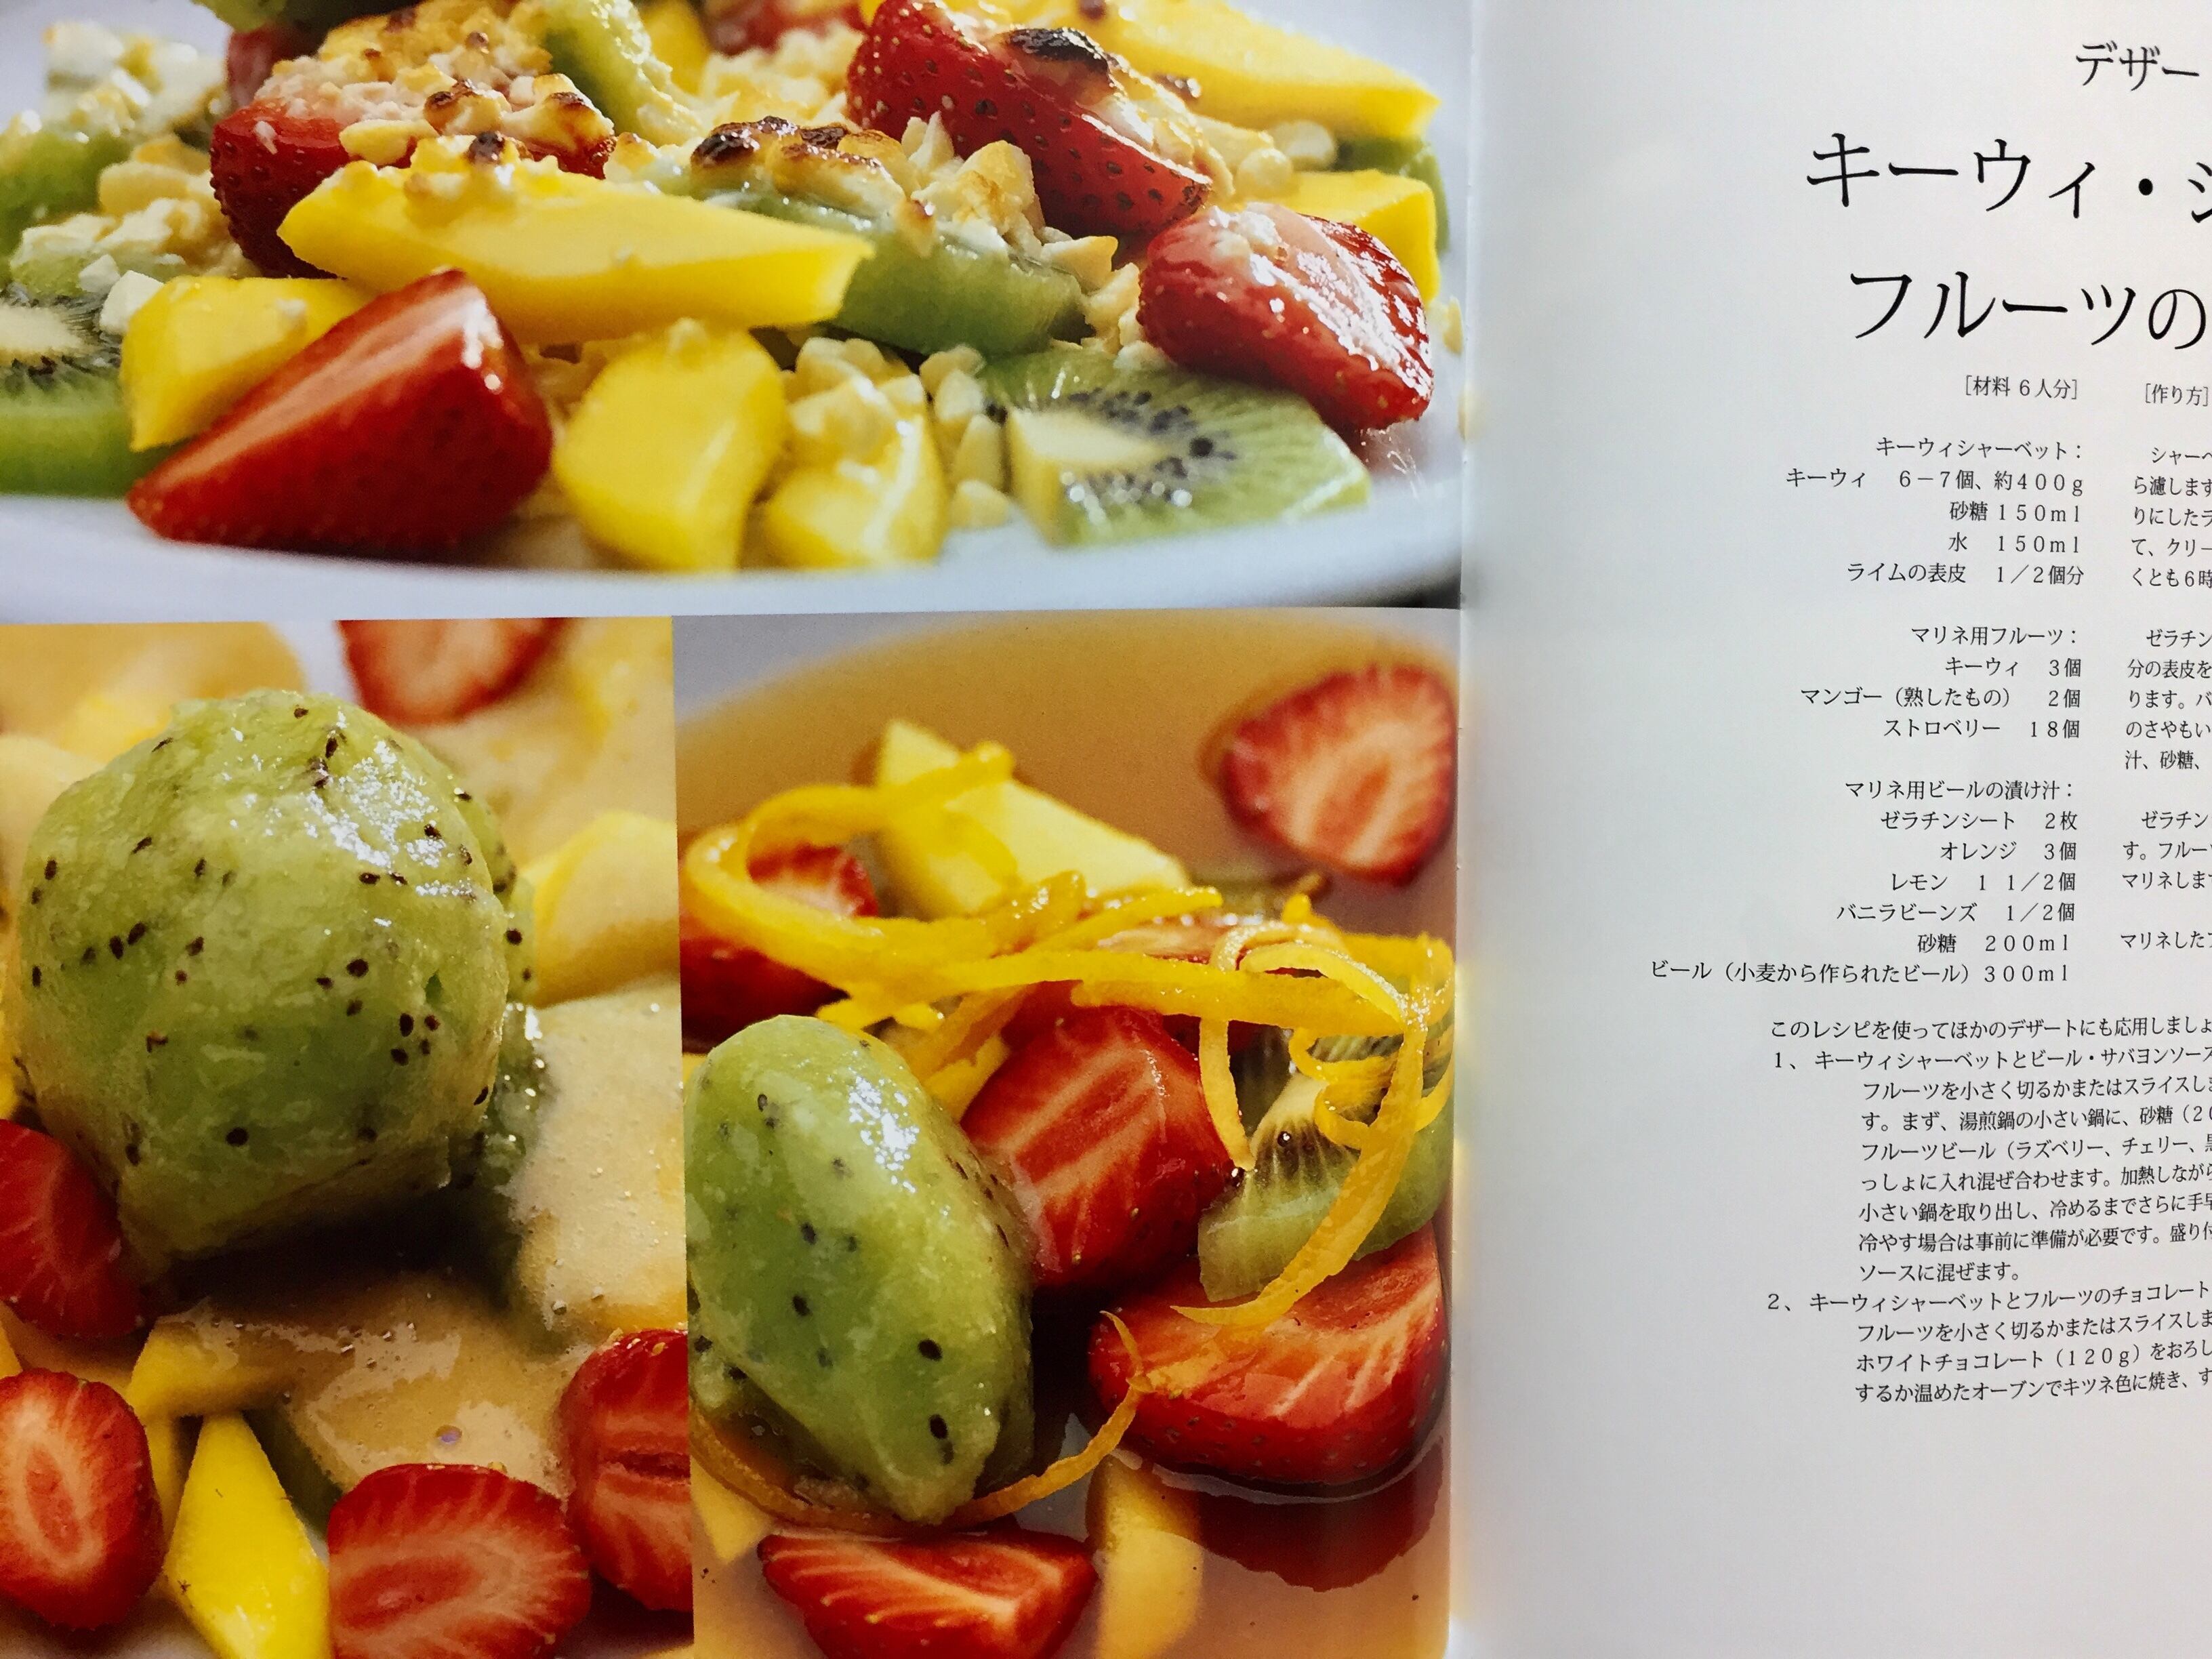 デザー
キーウィ・シ
フルーツの
［材料 6人分］
キーウィシャーベット：
キーウィ 6－7個、約400g
砂糖 150ml
水 150ml
ライムの表皮 1／2個分
マリネ用フルーツ：
キーウィ 3個
マンゴー（熟したもの） 2個
ストロベリー 18個
マリネ用ビールの漬け汁：
ゼラチンシート 2枚
オレンジ 3個
レモン 1 1／2個
バニラビーンズ 1／2個
砂糖 200ml
ビール（小麦から作られたビール）300ml
［作り方］
シャーベ
ら濾します
りにしたラ
て、クリー
くとも6時
ゼラチン
分の表皮を
ります。バ
のさやもい
汁、砂糖、
ゼラチン
す。フルーツ
マリネしま
マリネした
このレシピを使ってほかのデザートにも応用しましょ
1、 キーウィシャーベットとビール・サバヨンソース
フルーツを小さく切るかまたはスライスしま
す。まず、湯煎鍋の小さい鍋に、砂糖（20
フルーツビール（ラズベリー、チェリー、黒
っしょに入れ混ぜ合わせます。加熱しながら
小さい鍋を取り出し、冷めるまでさらに手早
冷やす場合は事前に準備が必要です。盛り付
ソースに混ぜます。
2、 キーウィシャーベットとフルーツのチョコレート
フルーツを小さく切るかまたはスライスしま
ホワイトチョコレート（120g）をおろし
するか温めたオーブンでキツネ色に焼き、す